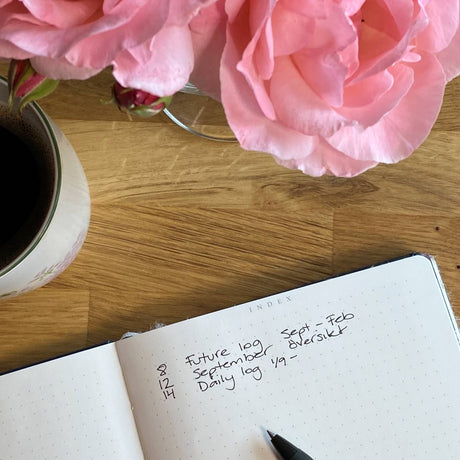 INDEX
8 Future log Sept - Feb
12 September översikt
14 Daily log 1/9 -